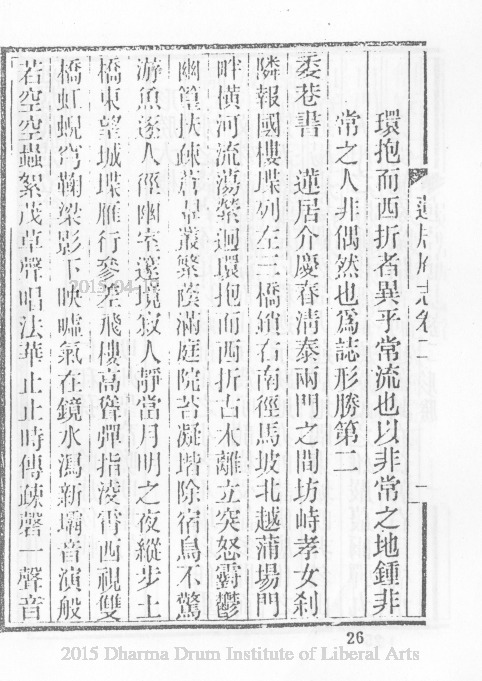 蓮居庵志卷二 一
環抱而西折者異乎常流也以非常之地鍾非
常之人非偶然也爲誌形勝第二
委巷書 蓮居介慶春清泰兩門之間坊峙孝女刹
隣報國樓堞列左三橋鎖右南徑馬坡北越蒲場門
畔橫河流蕩縈迴環抱而西折古木離立突怒霨鬱
幽篁扶疎蒼翠叢繁蔭滿庭院苔凝堦除宿鳥不驚
游魚遂人徑幽室邃境寂人靜當月明之夜縱步土
橋東望城堞雁行參差飛樓高聳彈指淩霄西視雙
橋虹蜺穹鞠梁影下映噓氣在鏡水瀉新壩音演般
若空空蟲絮茂草聲唱法華止止時傳疎磬一聲音
26
2015/04/14
2015 Dharma Drum Institute of Liberal Arts